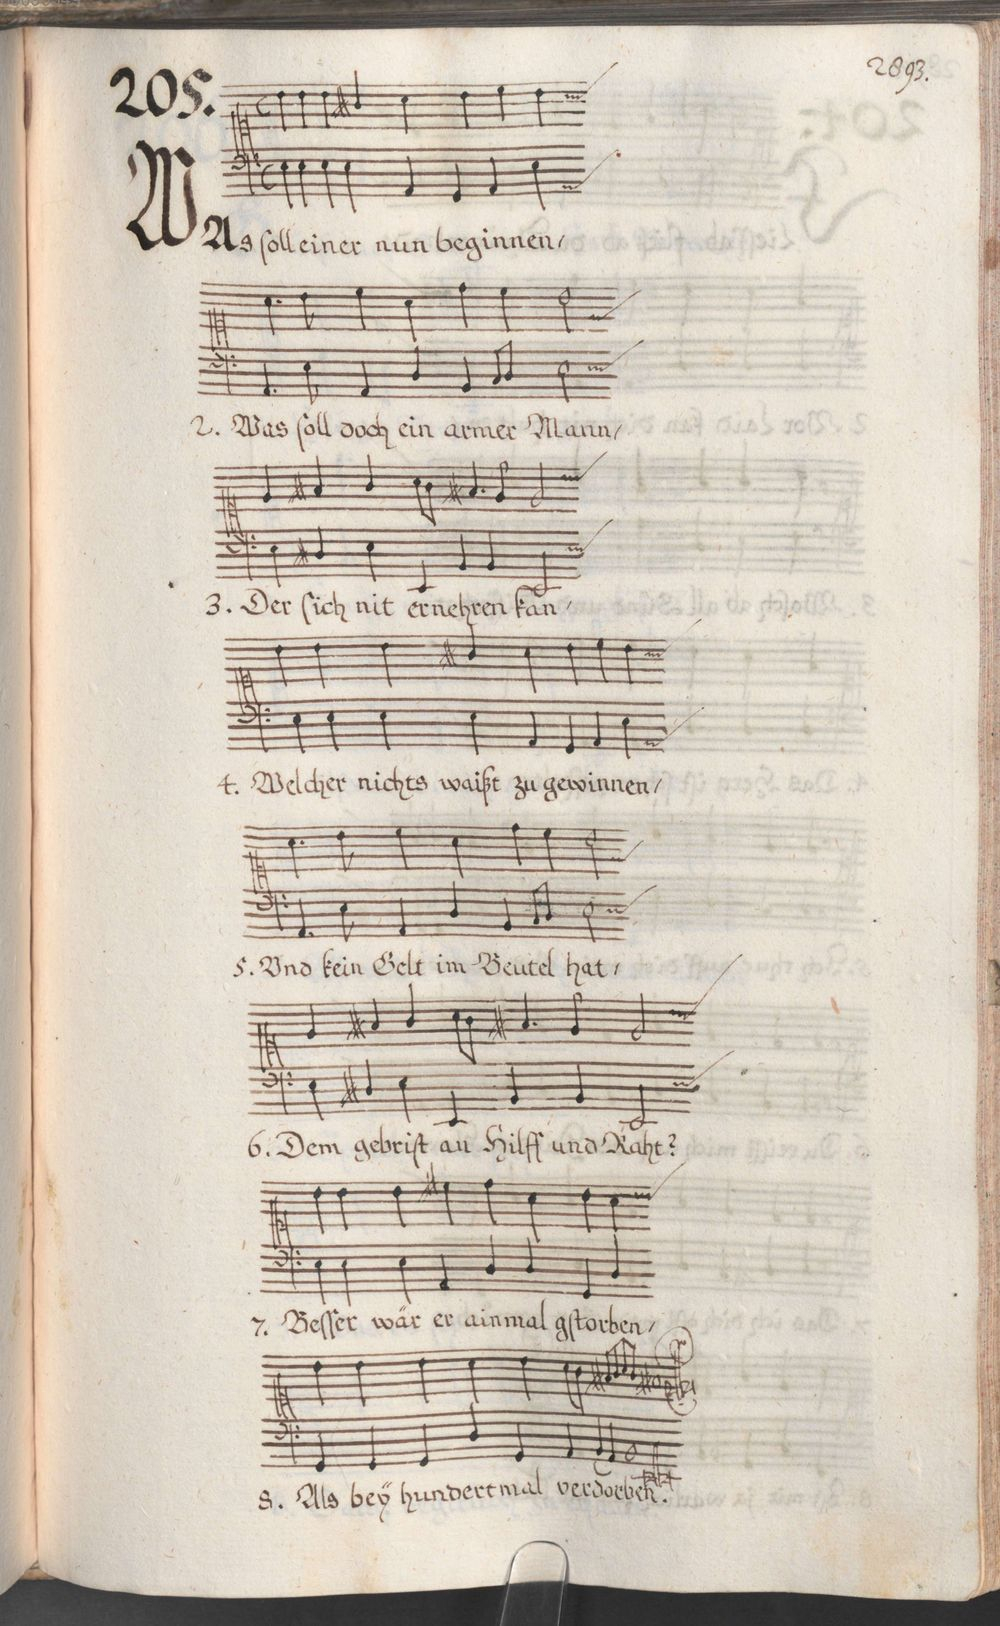 2893.
205.
WAs soll einer nun beginnen/
2. Was soll doch ein armer Mann/
3. Der sich nit ernehren kan/
4. Welcher nichts waißt zu gewinnen/
5. Vnd kein Gelt im Beutel hat/
6. Dem gebrist an Hilff und Raht?
7. Besser wär er ainmal gstorben/
8. Als beÿ hundert mal verdorben.